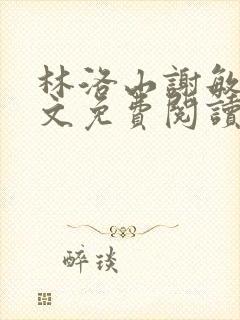 林洛山謝敏
文免費閱讀
醉琰